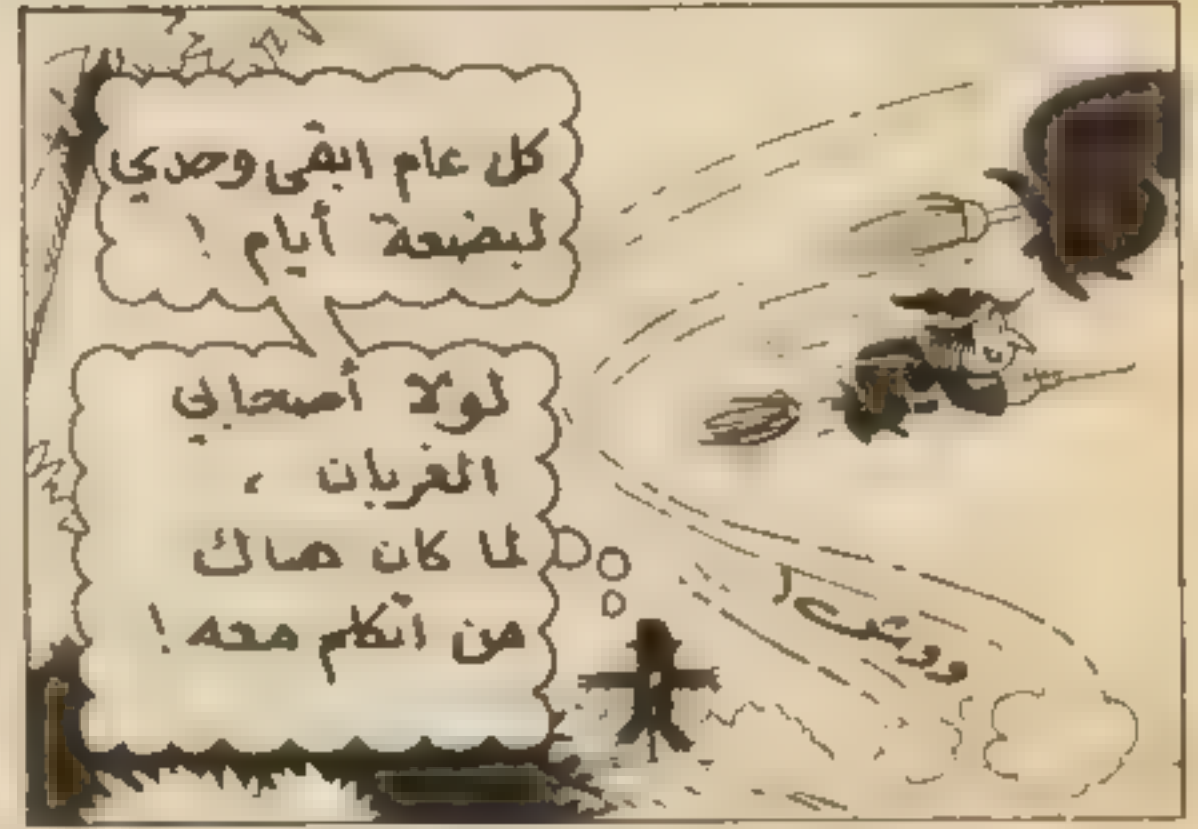 كل عام ابقى وحدي
لبضعة أيام !
لولا أصحابي
الغربان ،
لما كان هناك
من اتكلم معه !